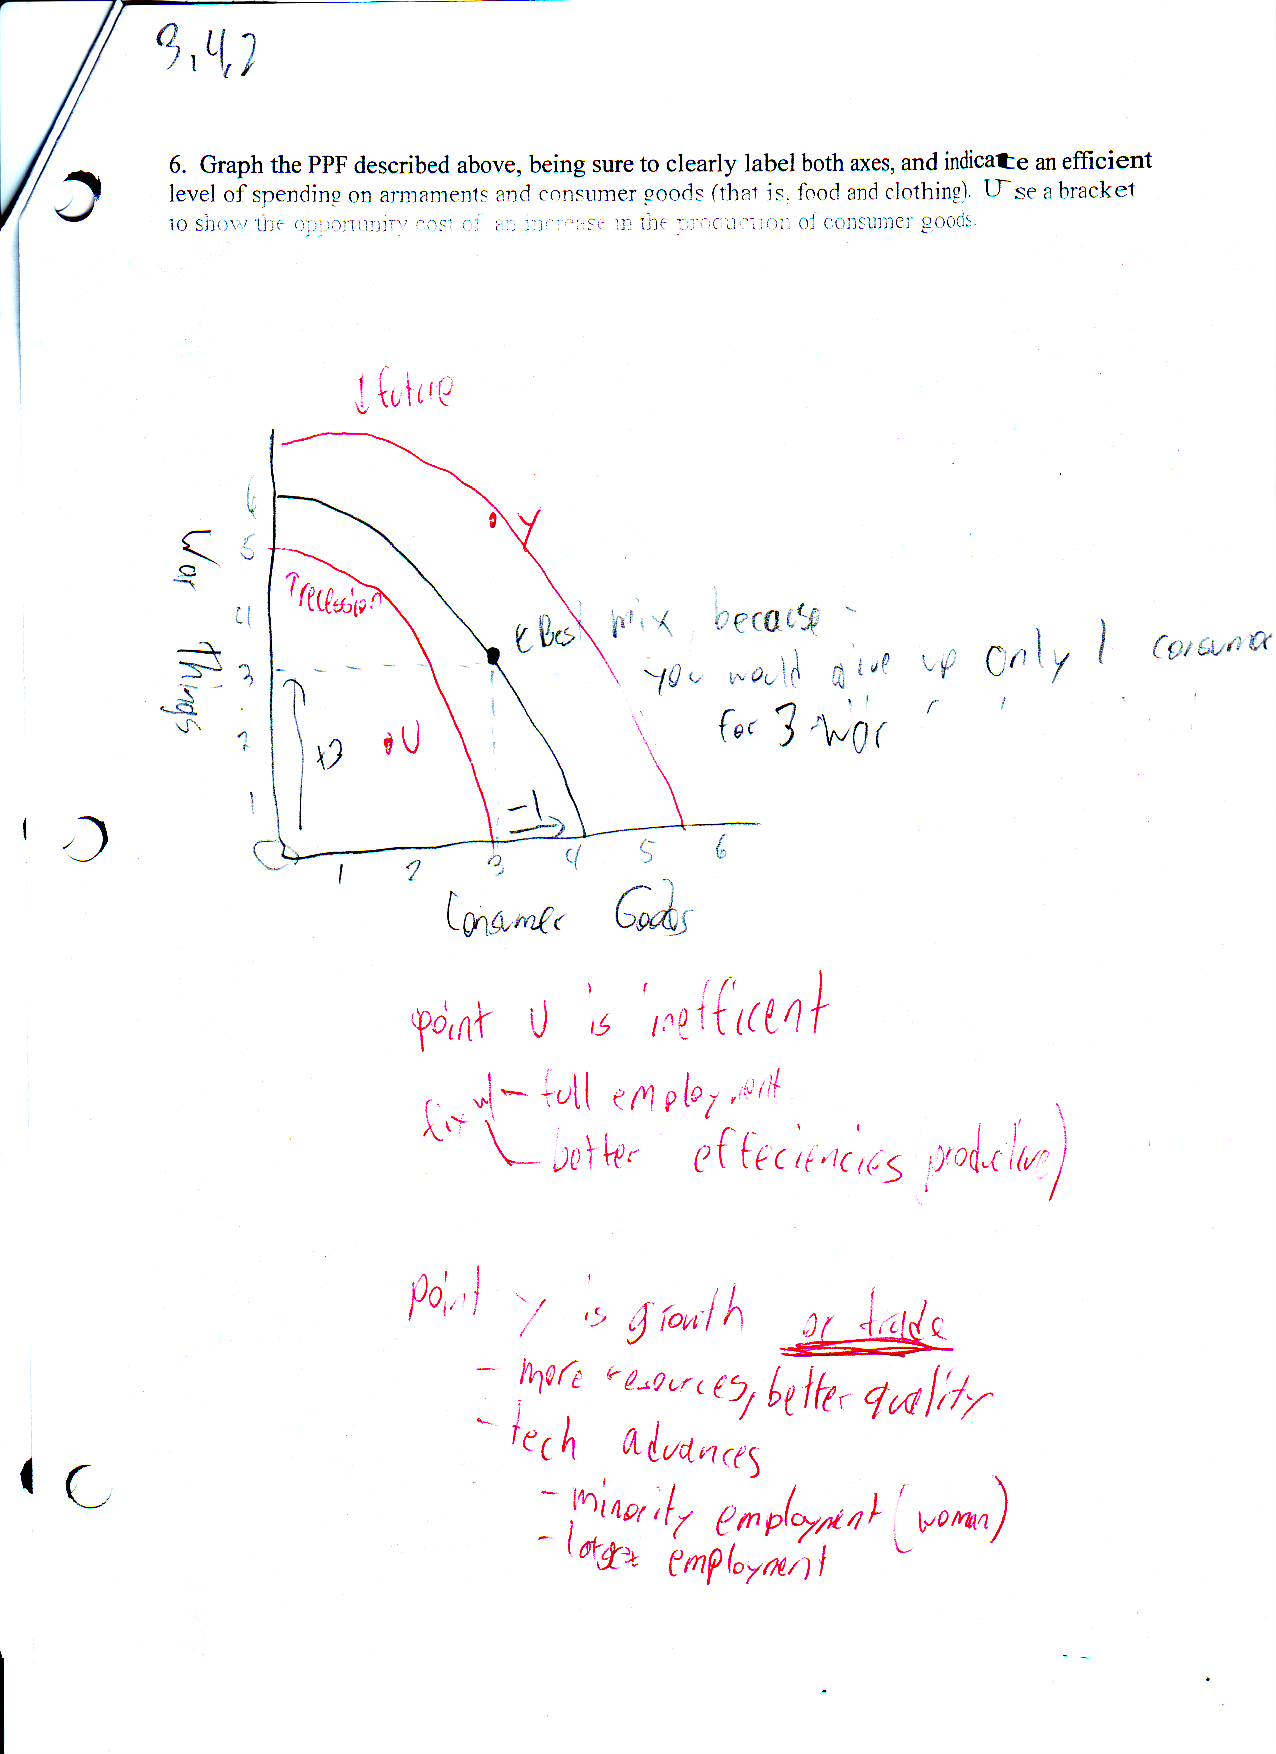 3,4,2
6. Graph the PPF described above, being sure to clearly label both axes, and indicate an efficient
level of spending on armaments and consumer goods (that is, food and clothing). Use a bracket
to show the opportunity cost of an increase in the production of consumer goods.
↓ future
6
5
4
3
2
1
War Things
Y
↑ recession
← Best mix because
you would give up only 1 consumer
for 3 war
+3
U
-1
1 2 3 4 5 6
Consumer Goods
point U is inefficent
fix w/ - full employment
- better effeciencies productive)
point Y is growth or trade
- more resources, better quality
- tech advances
- minority employment (woman)
- larger employment